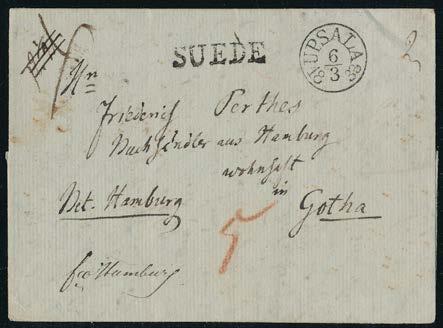 SUEDE
UPSALA
6
3
18 38
Hrn
Friederich Perthes
Buchhändler aus Hamburg
wohnhaft
in
Gotha
Pr. Hamburg
5
fco Hamburg